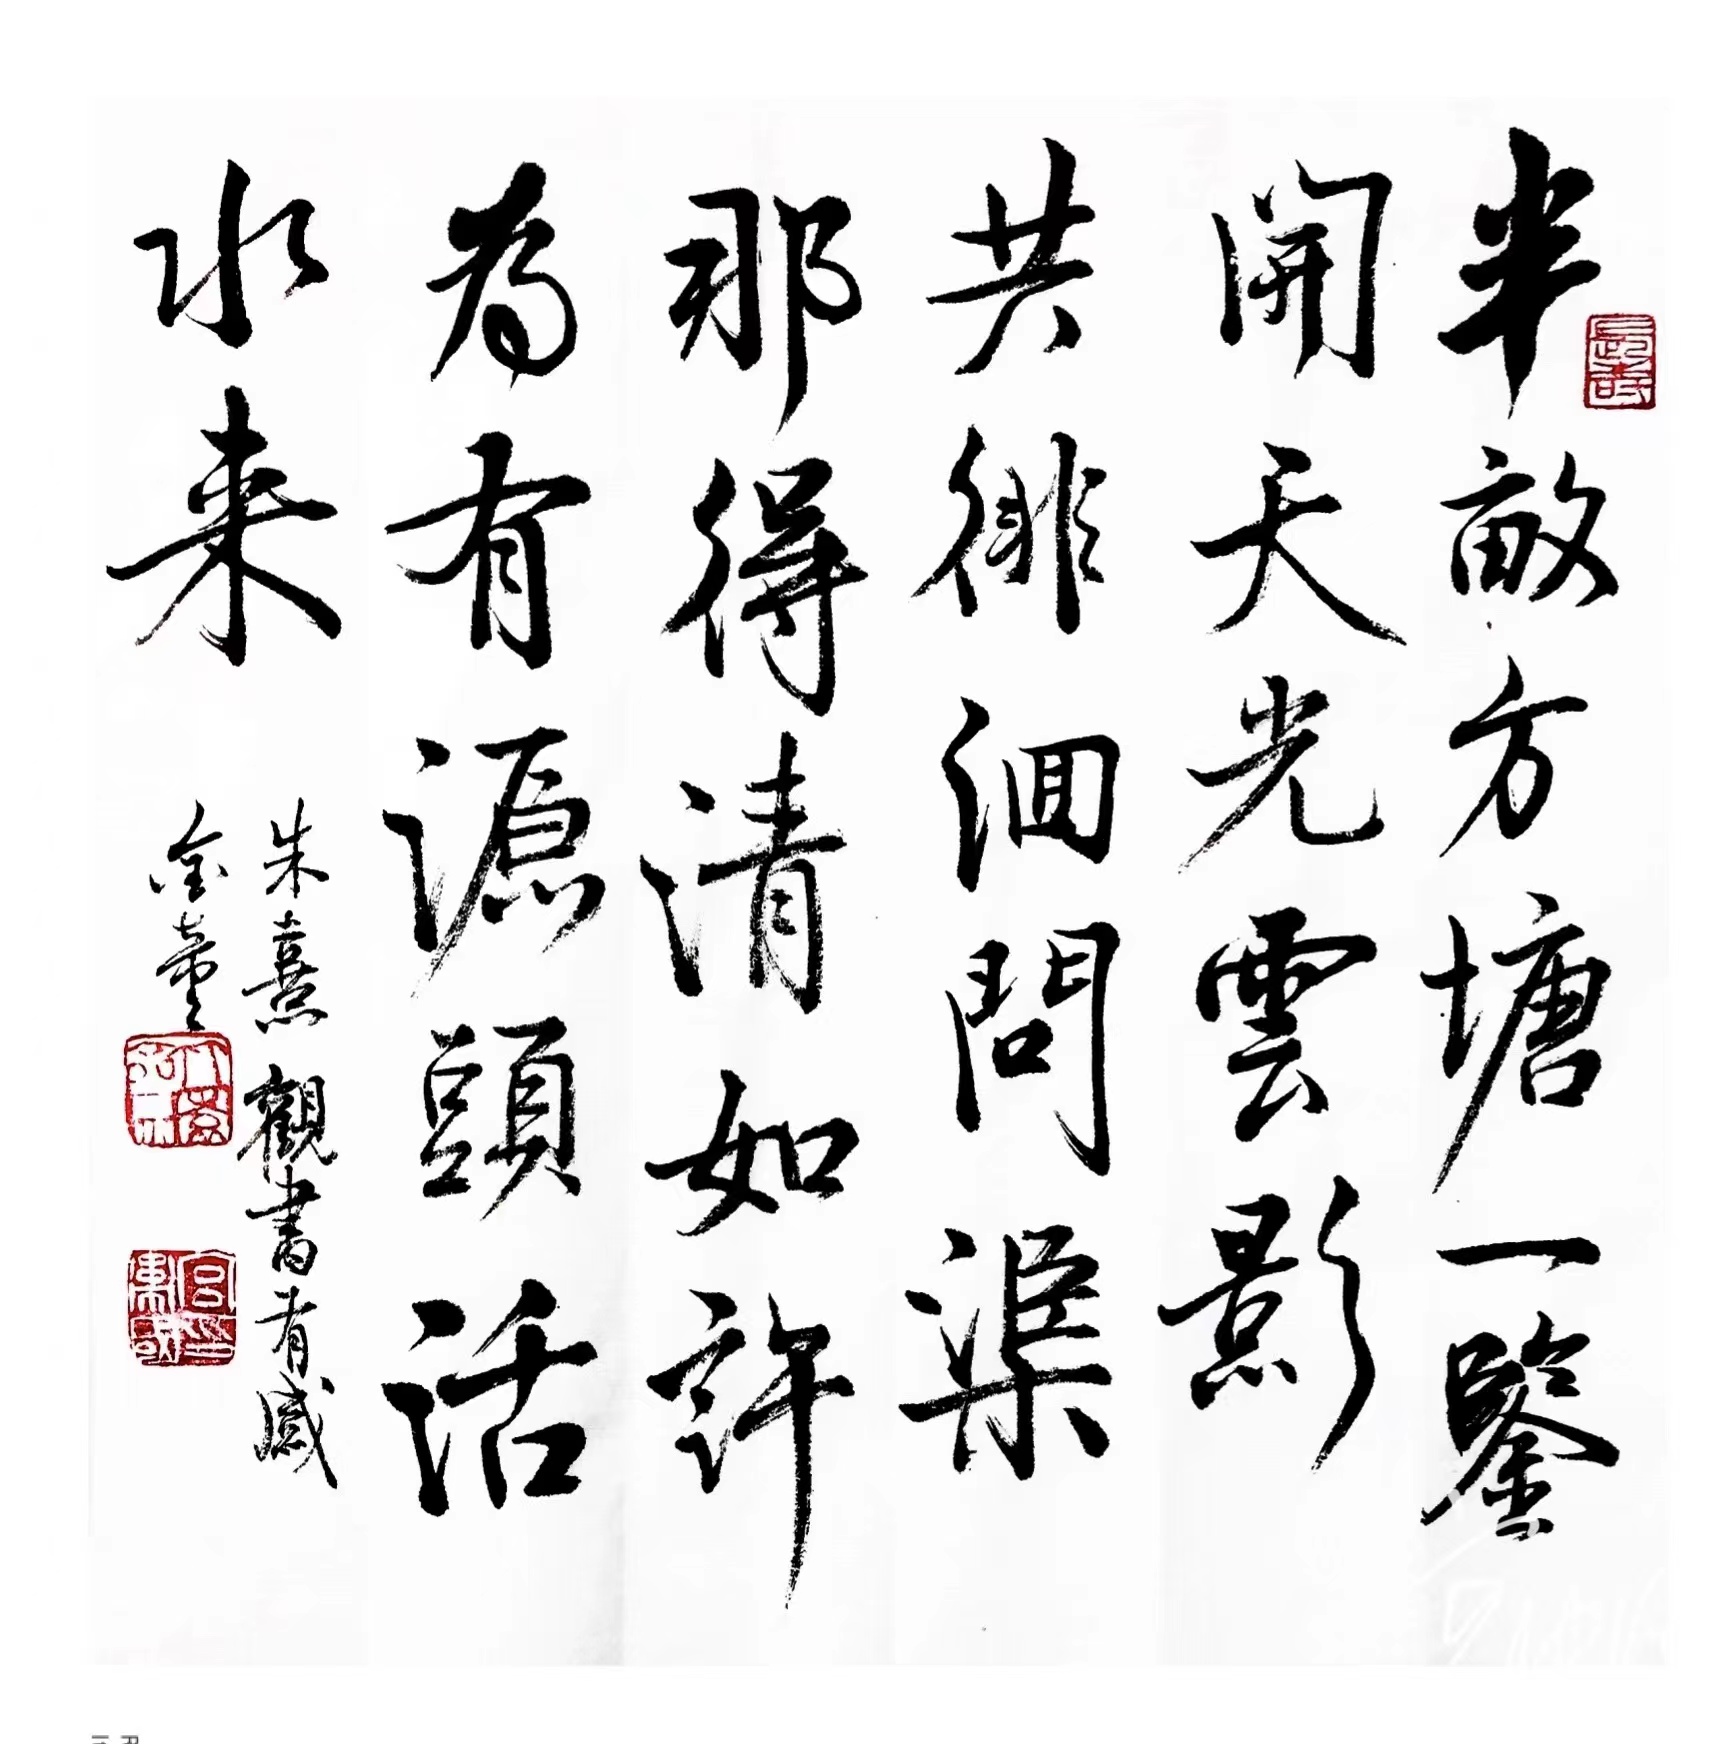 半畝方塘一鑒
開天光雲影
共徘徊問渠
那得清如許
為有源頭活
水来
朱熹觀書有感